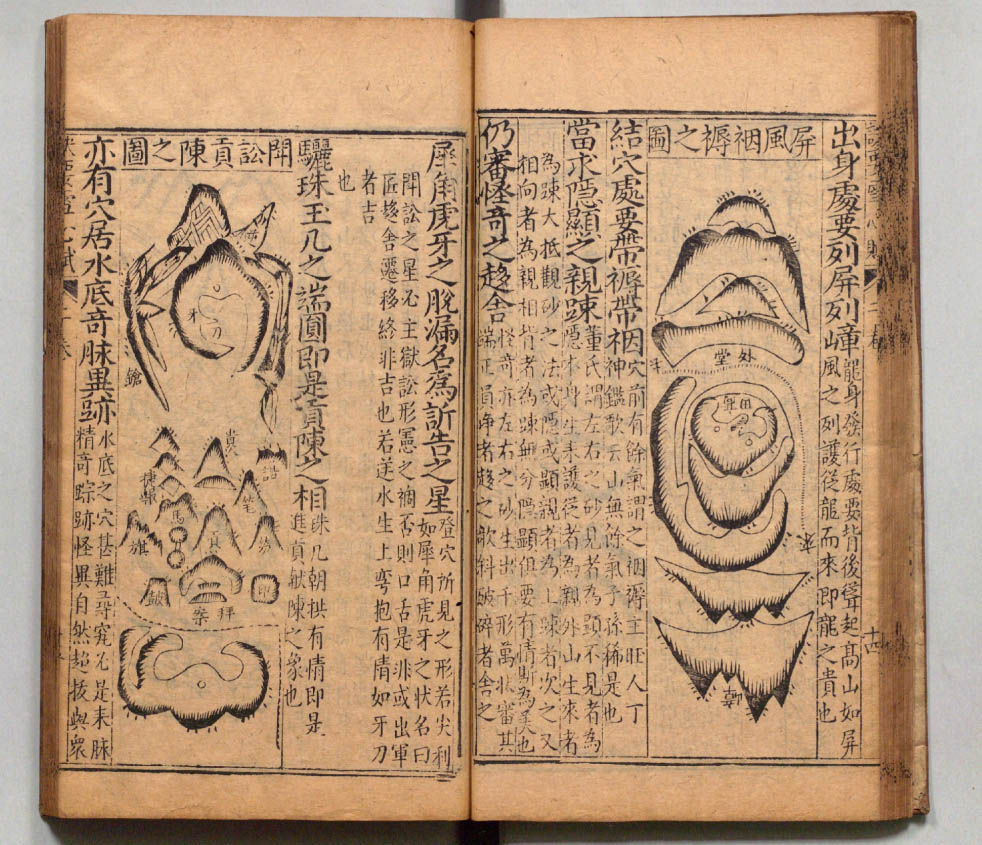 出身處要列屏列嶂
龍身發行處要背後聳起高山如屏
風之列護從龍而來即龍之貴也
屏風裀褥之圖
外堂
嶂
結穴處要帶褥帶裀
穴前有餘氣謂之裀褥主旺人丁
神鑑歌云山無餘氣子孫稀是也
當求隱顯之親踈
董氏謂左右之砂見者為顯不見者為
隱本身生來護從者為親外山生來者
為踈大抵觀砂之法或隱或顯親者為上踈者次之又
相向者為親相背者為踈細分隱顯俱要有情斯為美也
仍審怪奇之趍舍
怪奇亦左右之砂生出千形萬狀審其
端正員净者趍之欹斜破碎者舍之
犀角虎牙之脫漏名爲訢告之星
登穴所見之形若尖利
如犀角虎牙之狀名曰
鬪訟之星必主獄訟形憲之禍否則口舌是非或出軍
匠趍舍遷移終非吉也若逆水生上弯抱有情如牙刀
者吉
也
驪珠玉几之端圓即是貢陳之相
珠几朝拱有情即是
進貢獻陳之象也
鬪訟貢陳之圖
牙刀
鎗
貴人
誥
笔
馬
旗
印
拜案
亦有穴居水底奇脉異跡
水底之穴甚難尋究必是来脉
精奇踪跡怪異自然超拔與衆
十四